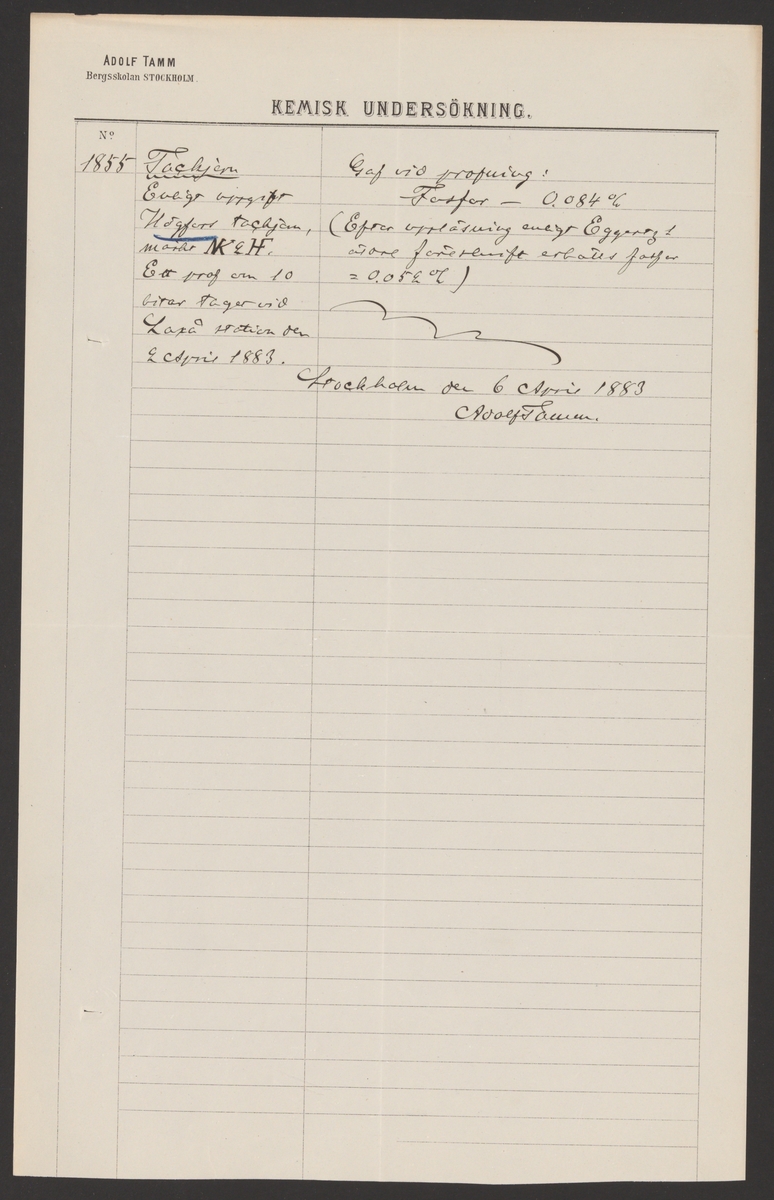 ADOLF TAMM
Bergsskolan STOCKHOLM.
KEMISK UNDERSÖKNING.
No
1855 Tackjern
Enligt uppgift
Högfors tackjern,
märkt NK&H.
Ett prof om 10
bitar taget vid
Laxå station den
2 April 1883.
Gaf vid profning:
Fosfor — 0.084 %
(Efter upplösning enligt Eggertz:
äldre föreskrift erhölls fosfor
= 0.052 %)
Stockholm den 6 April 1883
Adolf Tamm.